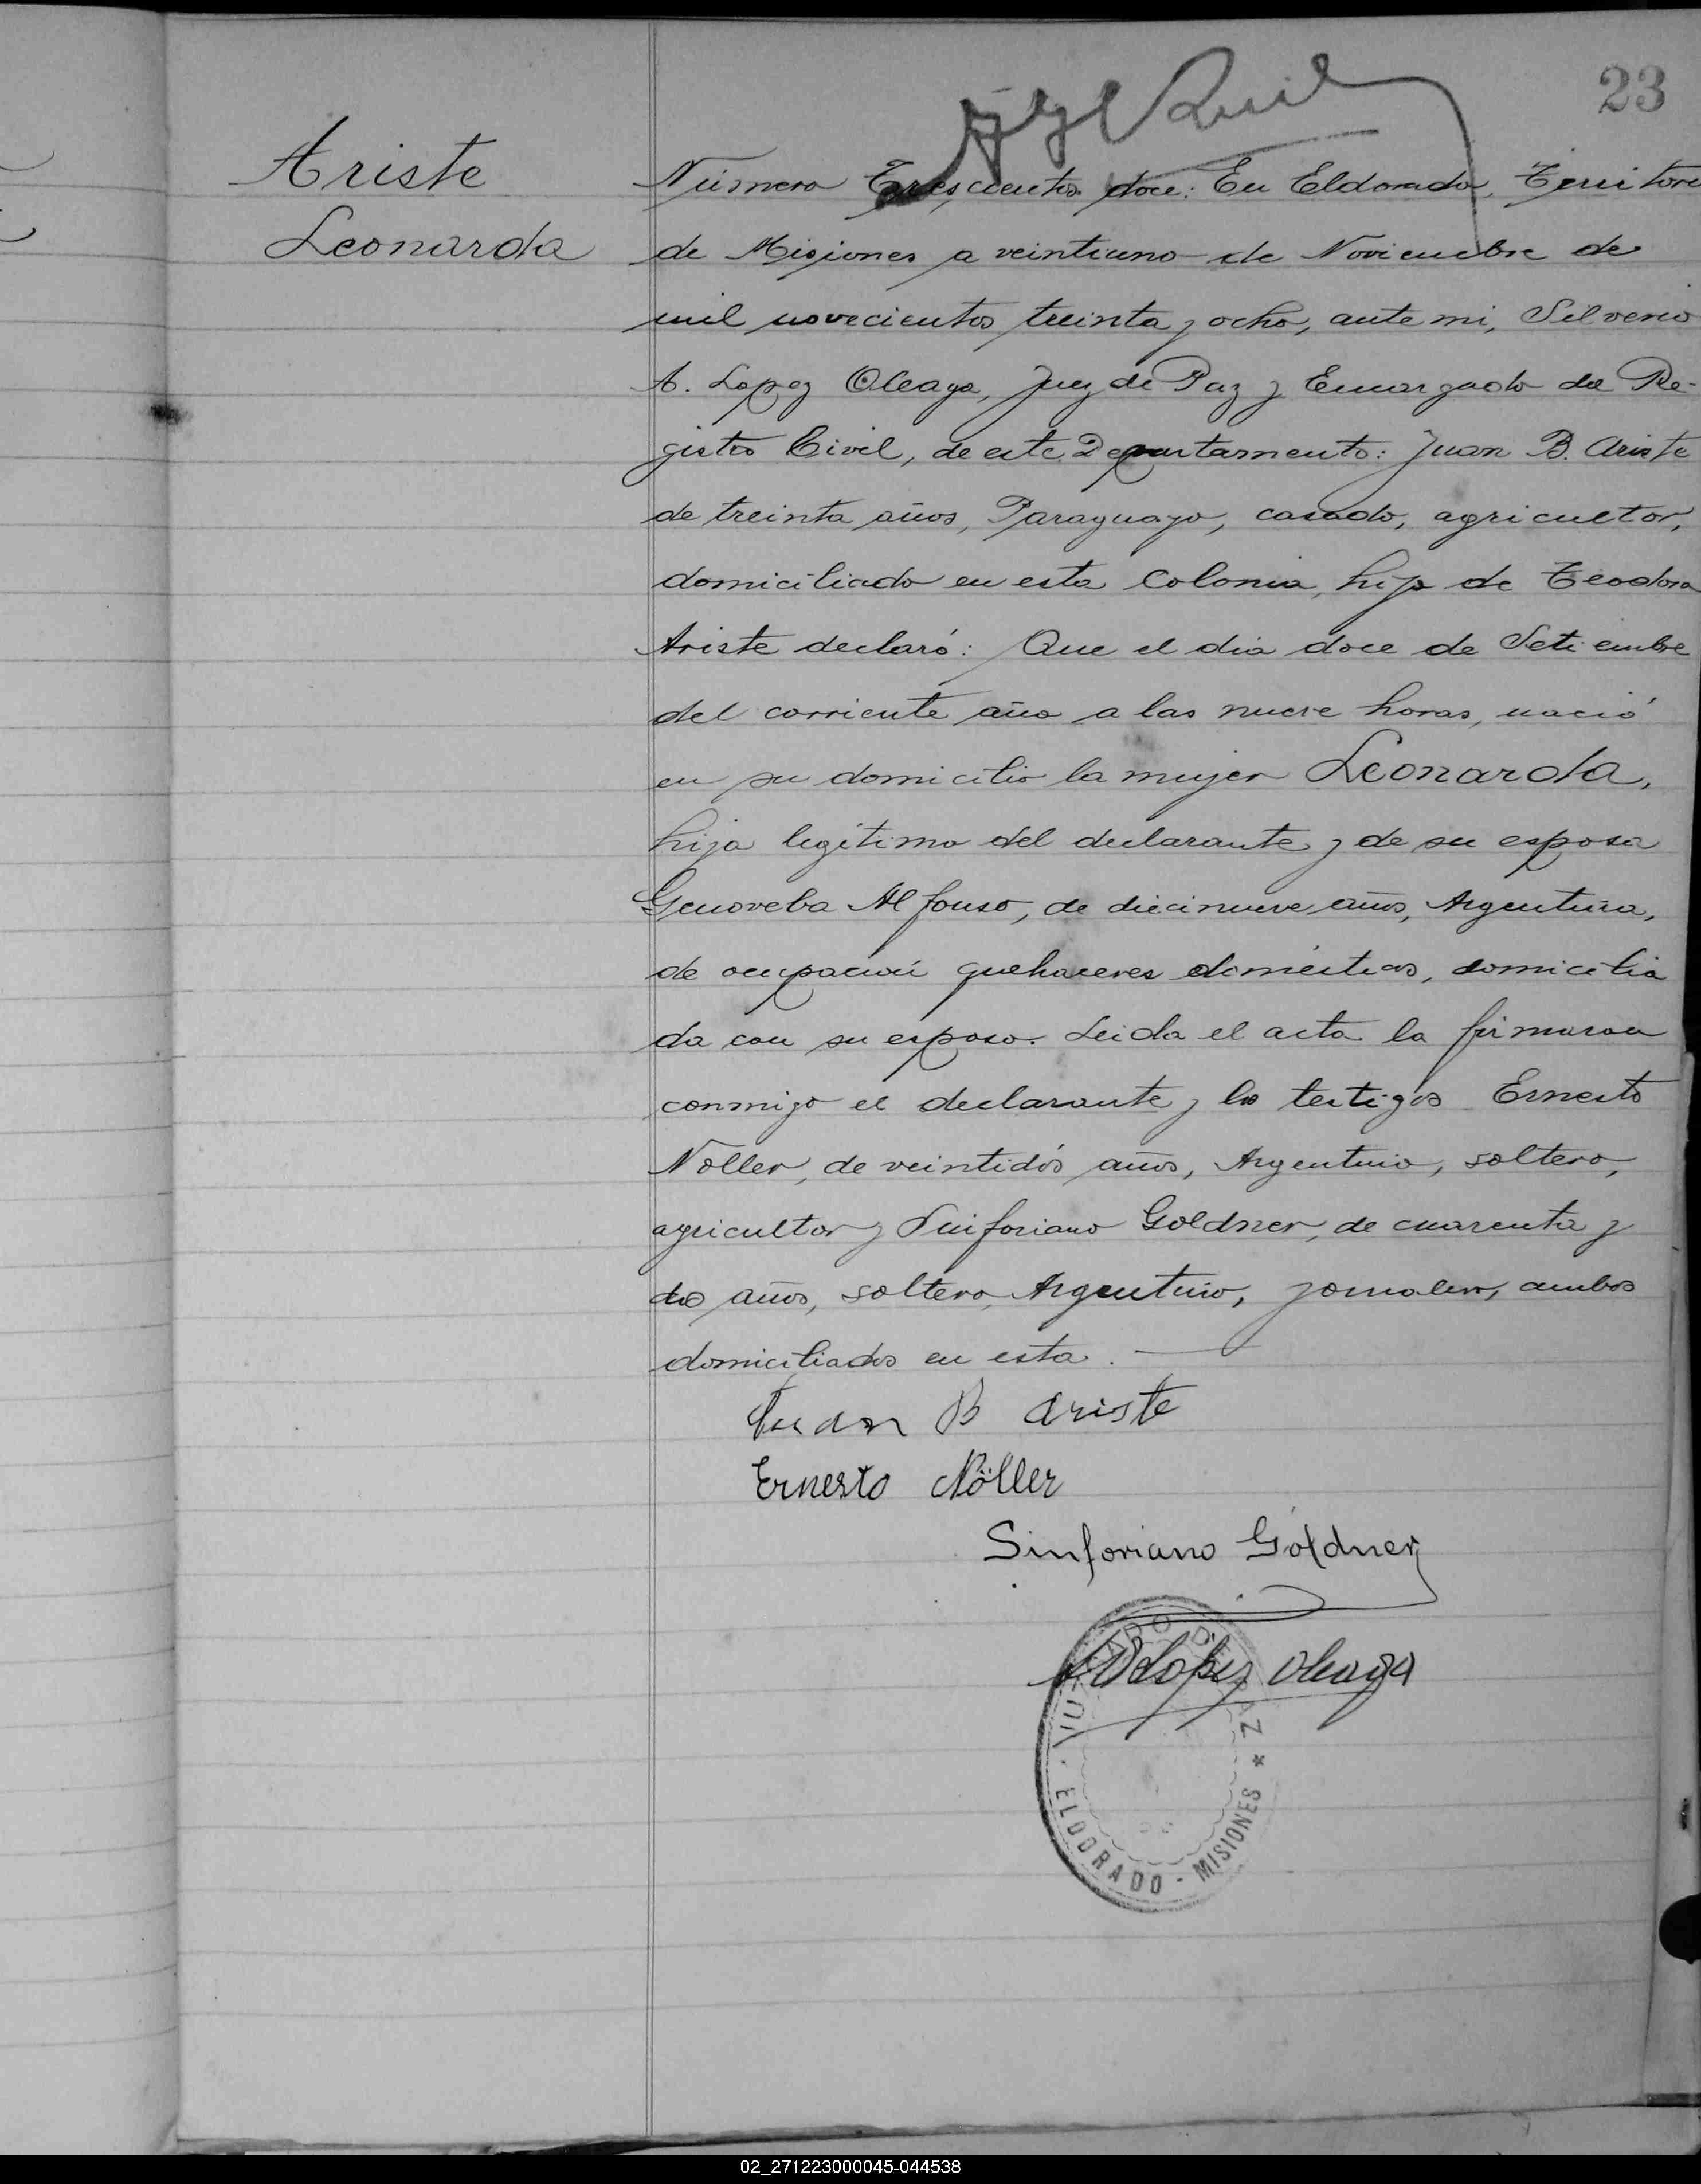 23
Ariste
Leonarda
Número Trescientos doce: En Eldorado, Territorio
de Misiones a veintiuno de Noviembre de
mil novecientos treinta y ocho, ante mi, Silverio
A. Lopez Oleaga, Juez de Paz y Encargado del Re-
gistro Civil, de este Departamento: Juan B. Ariste
de treinta años, Paraguayo, casado, agricultor,
domiciliado en esta Colonia, hijo de Teodora
Ariste declaró: Que el dia doce de Setiembre
del corriente año a las nueve horas, nació
en su domicilio la mujer Leonarda,
hija legítima del declarante y de su esposa
Genoveba Alfonso, de diecinueve años, Argentina,
de ocupación quehaceres domésticos, domicilia
da con su esposo. Leida el acta la firmaron
conmigo el declarante y los testigos Ernesto
Nöller, de veintidós años, Argentino, soltero,
agricultor y Sinforiano Goldner, de cuarenta y
dos años, soltero, Argentino, jornalero, ambos
domiciliados en esta.
Juan B Ariste
Ernesto Nöller
Sinforiano Goldner
Lopez Oleaga
JUZGADO DE PAZ * ELDORADO - MISIONES *
02_271223000045-044538